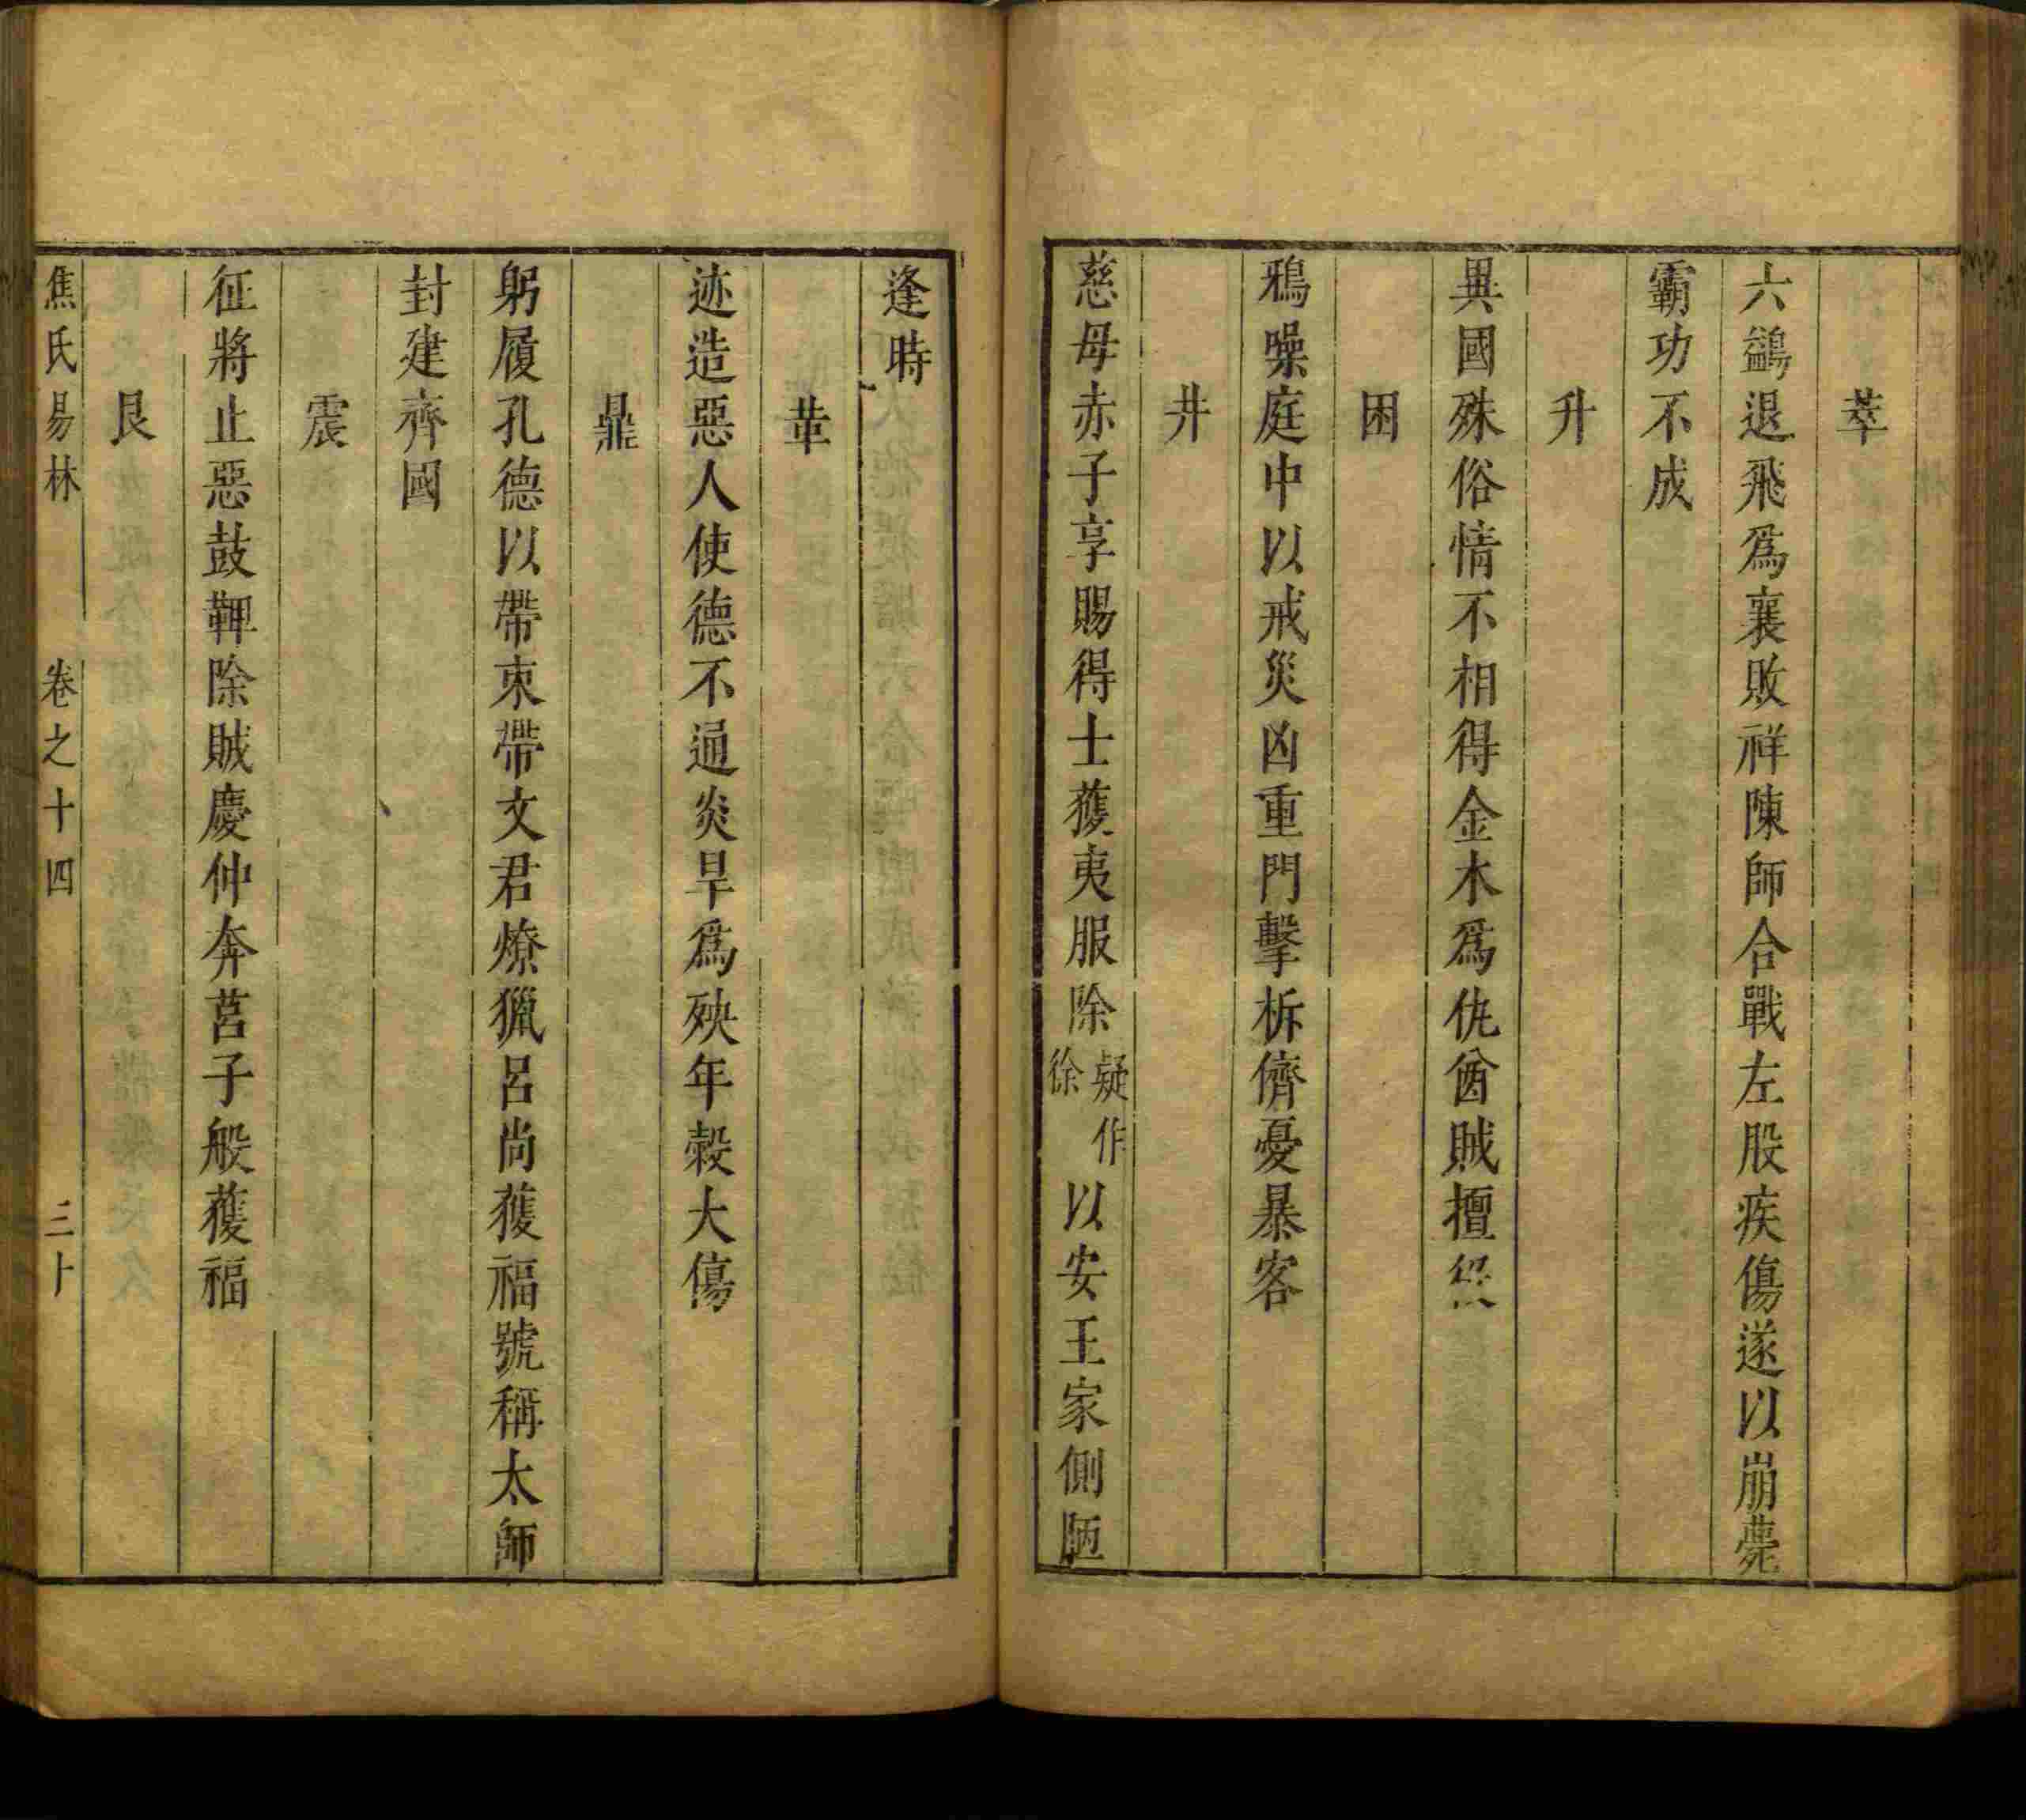 萃
六鷁退飛爲襄敗祥陳師合戰左股疾傷遂以崩薨
霸功不成
升
異國殊俗情不相得金木爲仇酋賊擅
困
鴉噪庭中以戒災凶重門擊柝儕憂暴客
井
慈母赤子享賜得士蒦夷服除疑作徐以安王家側陋
逢時
革
迹造惡人使德不通炎旱爲殃年榖大傷
鼎
躬履孔德以帶束帶文君燎獵呂尚獲福號稱太師
封建齊國
震
征將止惡鼓鞞除賊慶仲奔莒子般獲福
艮
焦氏易林 卷之十四 三十